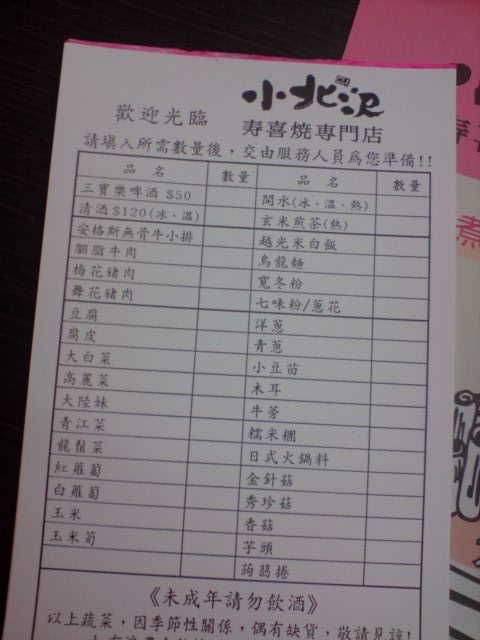 歡迎光臨
小北沢
CLI
寿喜燒專門店
請填入所需數量後，交由服務人員為您準備!!
品 名 數量 品 名 數量
三寶樂啤酒 $50 開水(冰、溫、熱)
清酒$120(冰、溫) 玄米煎茶(熱)
安格斯無骨牛小排 越光米白飯
胭脂牛肉 烏龍麵
梅花豬肉 寬冬粉
舞花豬肉 七味粉/蔥花
豆腐 洋蔥
腐皮 青蔥
大白菜 小豆苗
高麗菜 木耳
大陸妹 牛蒡
青江菜 糯米棚
龍鬚菜 日式火鍋料
紅蘿蔔 金針菇
白蘿蔔 秀珍菇
玉米 香菇
玉米筍 芋頭
蒟蒻捲
《未成年請勿飲酒》
以上蔬菜，因季節性關係，偶有缺貨，敬請見諒!
煮